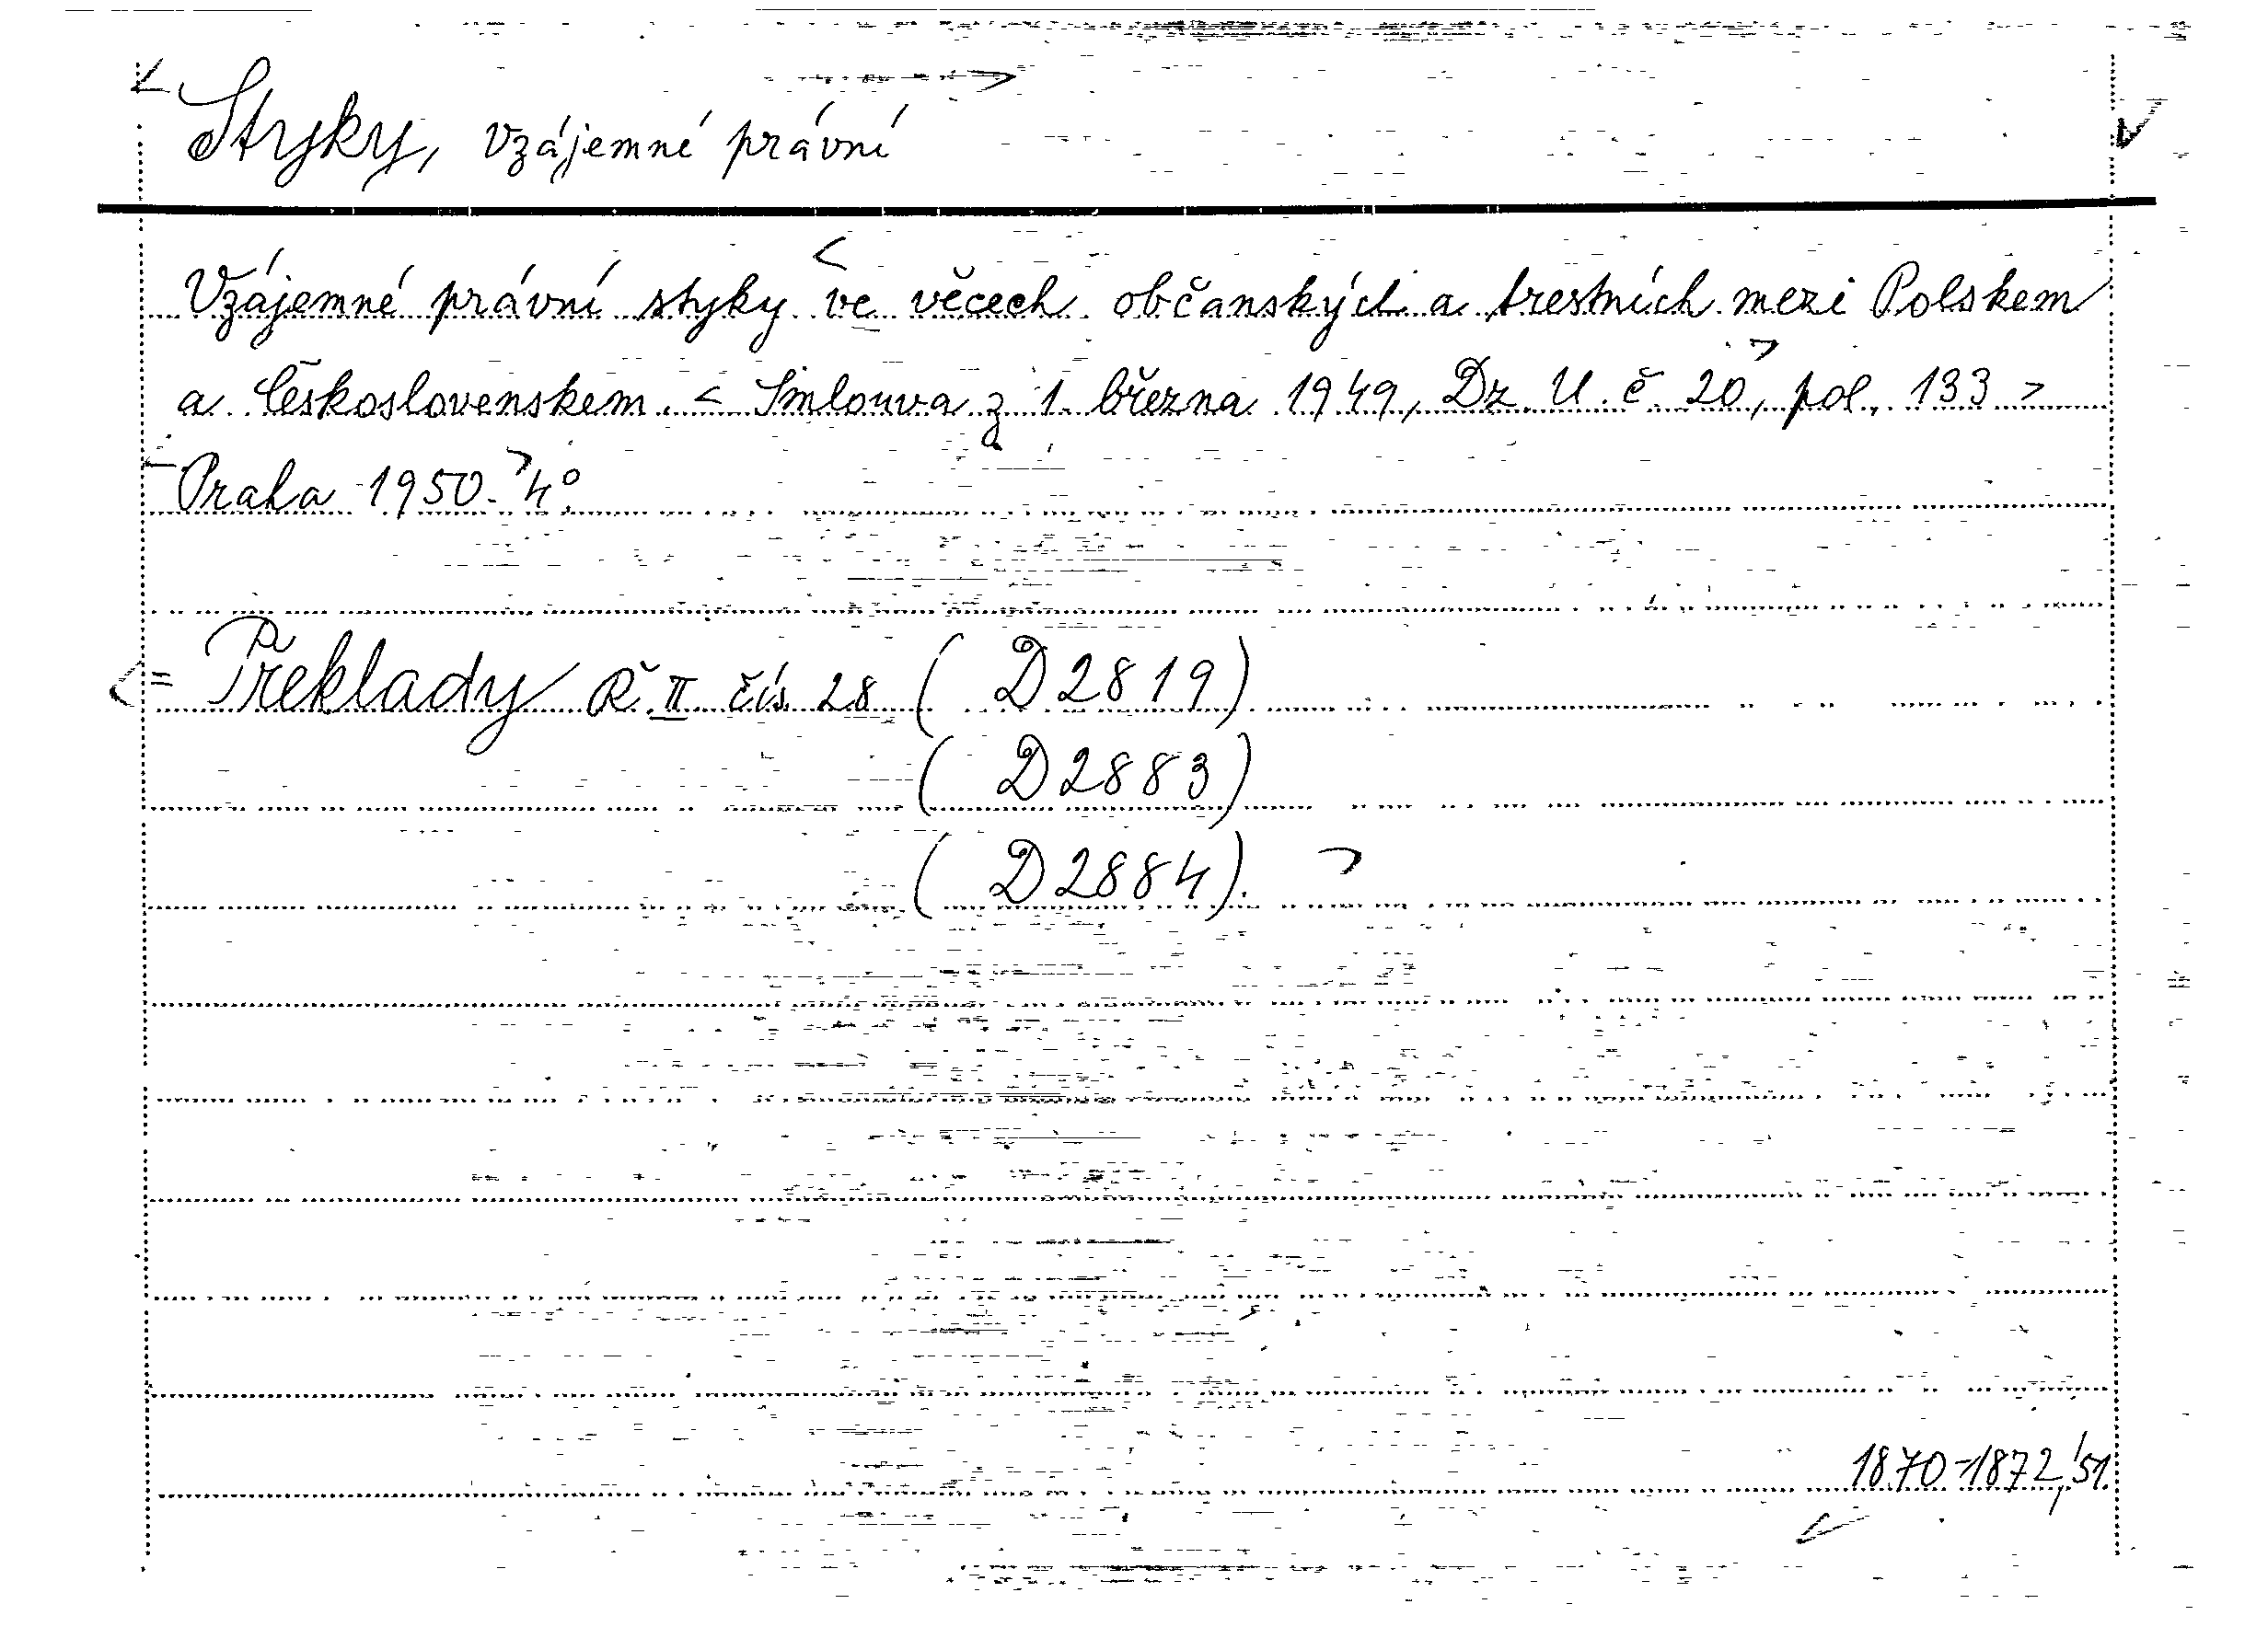 Styky, vzájemné právní
Vzájemné právní styky ve věcech občanských a trestních mezi Polskem
a Československem. < Smlouva z 1. března 1949, Dz. U. č. 20, pol. 133 >
Praha 1950. 4°.
= Překlady Ř. II. čís. 28 ( D 2819)
( D 2883)
( D 2884).
1870-1872,'51.